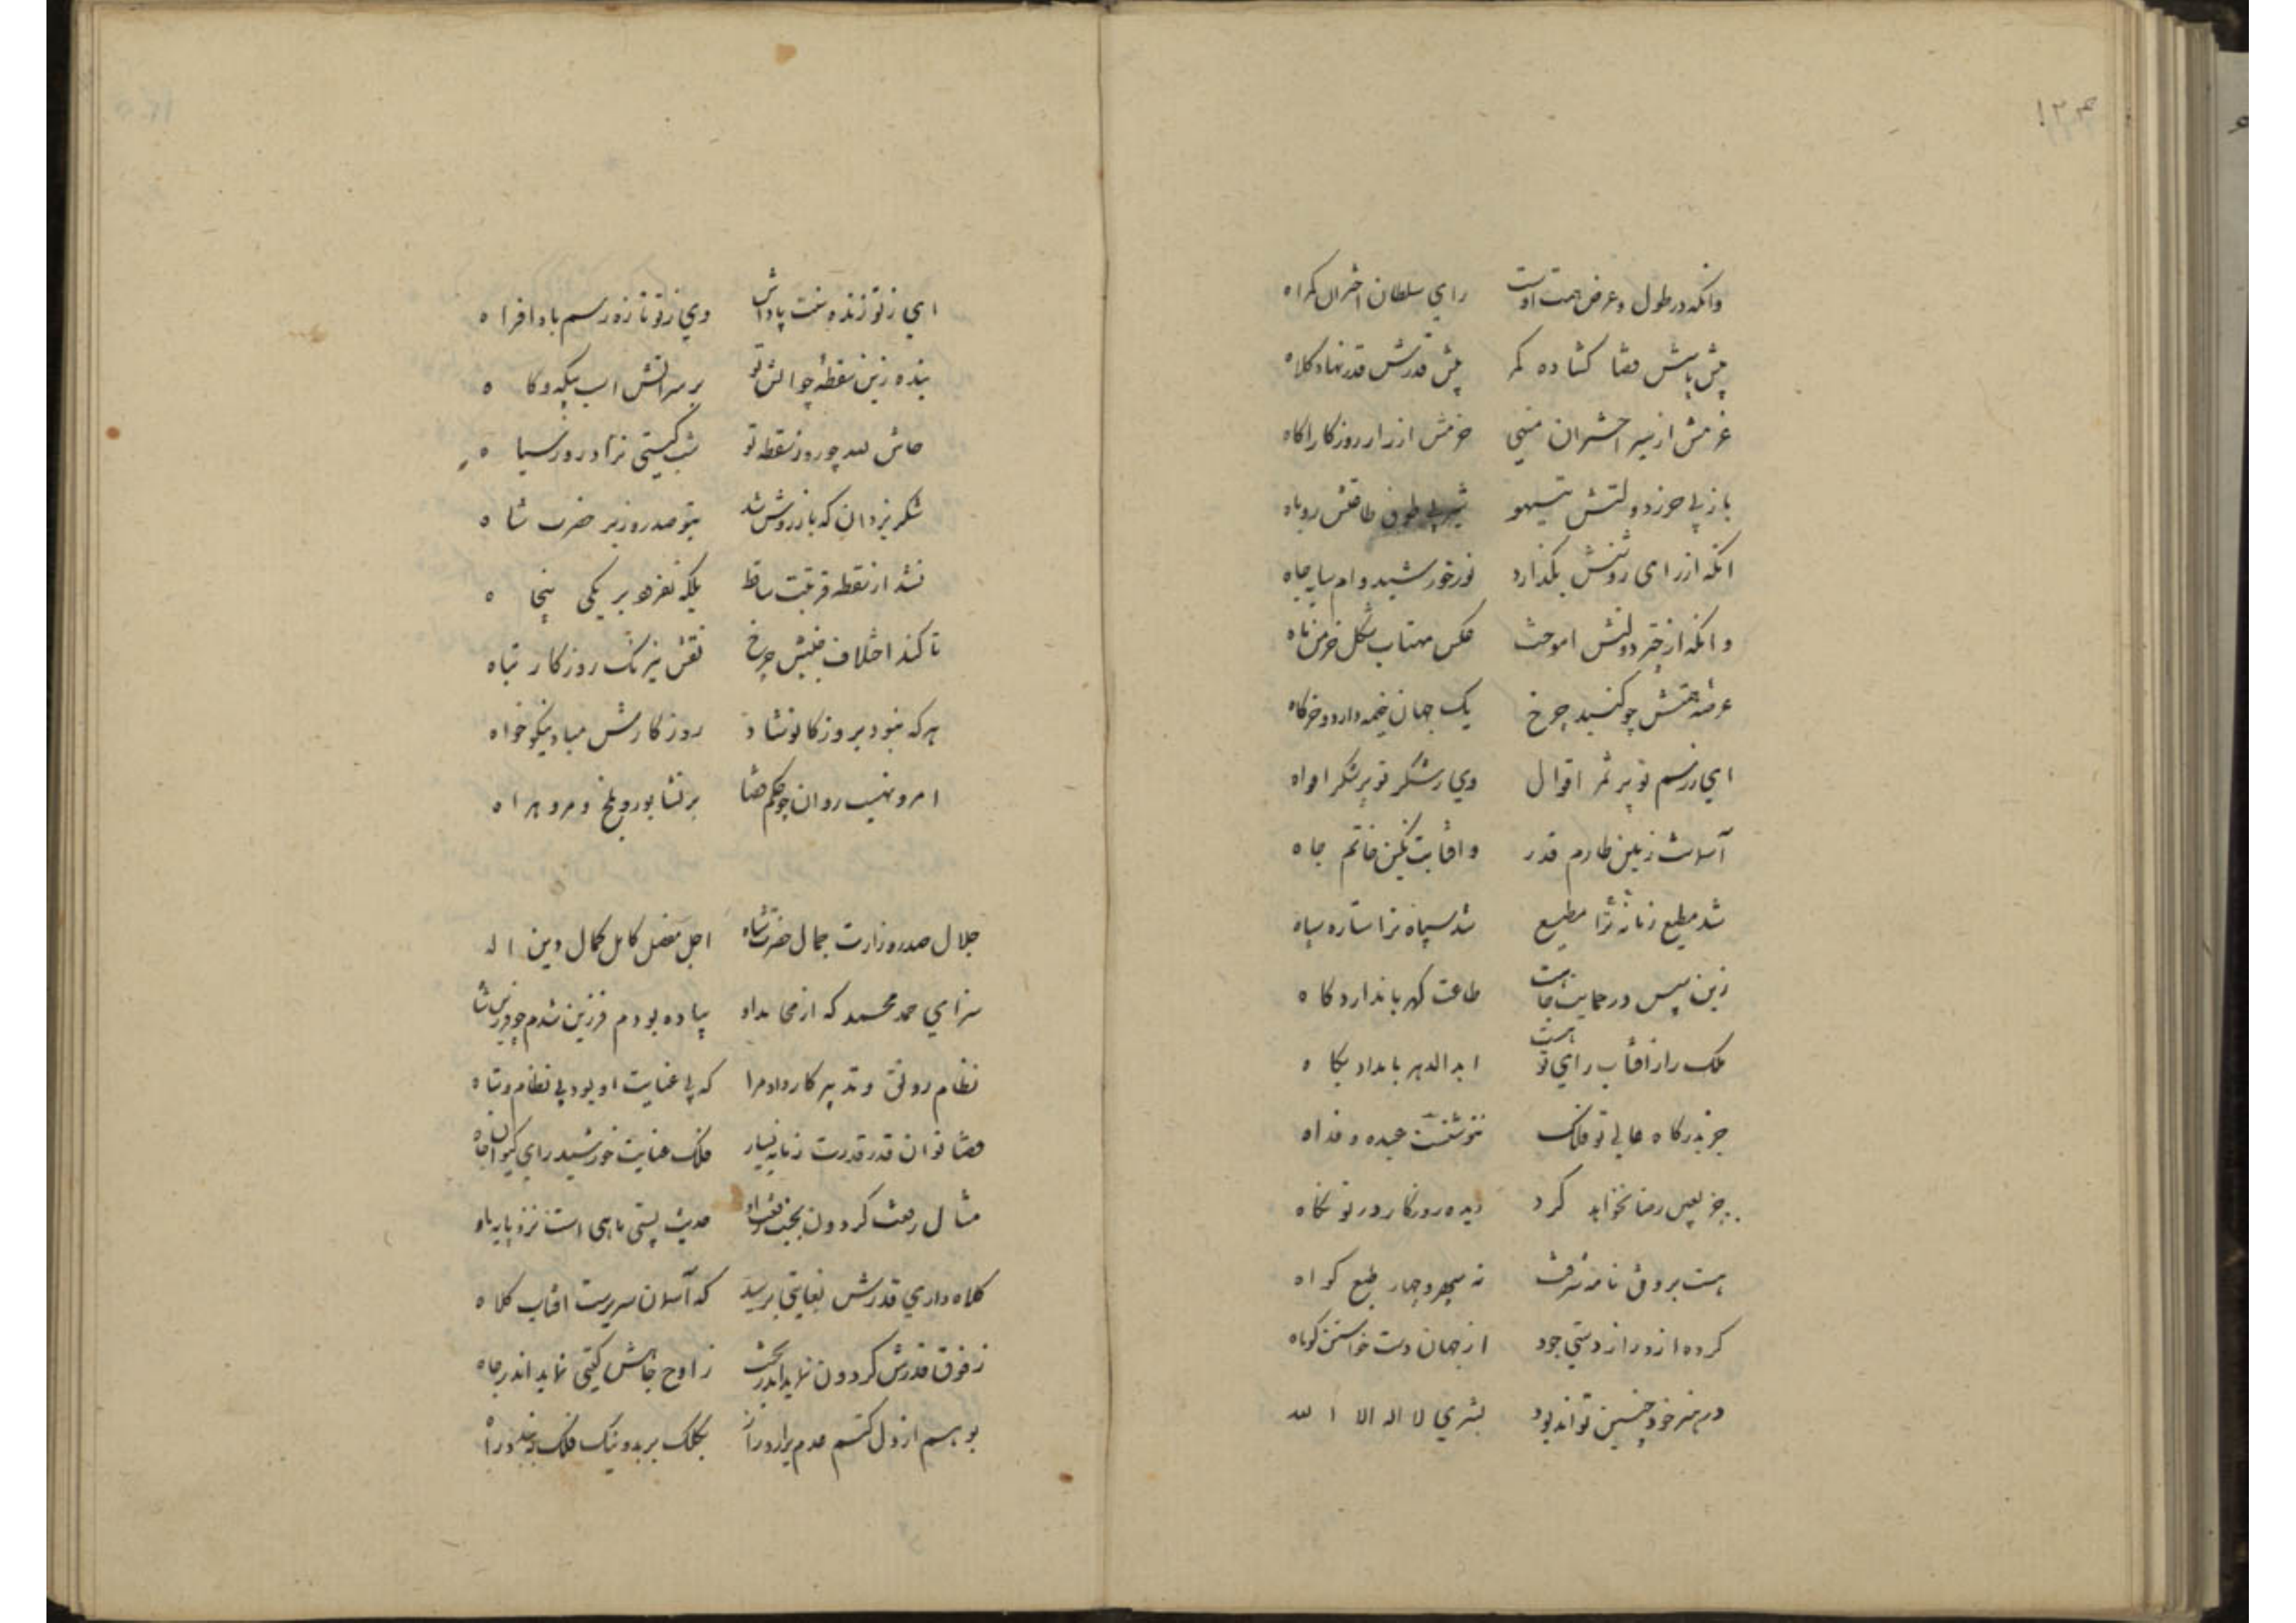 ۱۲۴
وانکه در طول و عرض همت اوست رای سلطان اختران کمراه
پیش پایش قضا کشاده کمر پیش قدرش قدر نهاد کلاه
عزمش از سیر اختران منهی حزمش از راز روزکار اکاه
باز پی حرز دولتش تیهو شیر پی طوق طاقتش روباه
انکه از رای روشنش بگذارد نور خورشید وام سایه جاه
وانکه از چتر دولتش اموخت عکس مهتاب شکل خرمن ماه
عرصه همتش چو کنبد چرخ یک جهان خیمه دارد و خرکاه
ای ز رسم تو پر ثمر اقوال وی ز شکر تو پر شکر افواه
آسمانت زمین طارم قدر وافتابت نگین خاتم جاه
شد مطیع ترا زمانه مطیع شد سپاه ترا ستاره سپاه
زین سپس در حمایت جاهت طاعت کهربا ندارد کاه
ملک را ز افتاب رای تو هست ابد الدهر بامداد پکاه
جز بدرکاه عالی تو فلک ننوشتست عبده و فداه
جز بعین رضا نخواهد کرد دیده روزکار در تو نکاه
هست بر وفق نامه شرفت نه سپهر و چهار طبع کواه
کرده از دور از دستی جود از جهان دست خواستن کوتاه
در هنر خود چنین تواند بود بشری لا اله الا الله
ای ز تو زنده سنت پاداش وی ز تو تازه رسم باد افراه
بنده زین سقطه چو اتش تو بر سر اتش است بیکه و کاه
حاش لله چو روز سقطه تو شب کیتی نزاد روز سیاه
شکر یزدان که باز روشن شد بتو صدر وزیر حضرت شاه
نشد از نقطه قربتت ساقط بلکه بفزود بر یکی پنجاه
تا کند اختلاف جنبش چرخ نقش نیرنک روزکار تباه
هر که نبود بروزکار تو شاد روزکارش مباد نیکو خواه
امر و نهیت روان چو حکم قضا بر نشابور و بلخ و مرو و هراه
جلال صدر وزارت جمال حضرت شاه اجل مفضل کامل کمال دین اله
سزای حمد محمد که از محامد او پیاده بودم فرزین شدم چو فرزین شاه
نظام رونق و تدبیر کار داد مرا که بی عنایت او بود بی نظام و تباه
قضا توان قدر قدرت زمانه یسار فلک عنایت خورشید رای کیوان جاه
مثال رفعت کردون بجنب رفعت او حدیث پستی ماهی است نزد پایه ماه
کلاه داری قدرش بغایتی برسید که آسمان سریرست افتاب کلاه
ز فوق قدرش کردون نماید اندر تحت ز اوج جاهش کیتی نماید اندر چاه
بوهم از دل کتم عدم برارد راز بکلک بر بد و نیک فلک ببندد راه